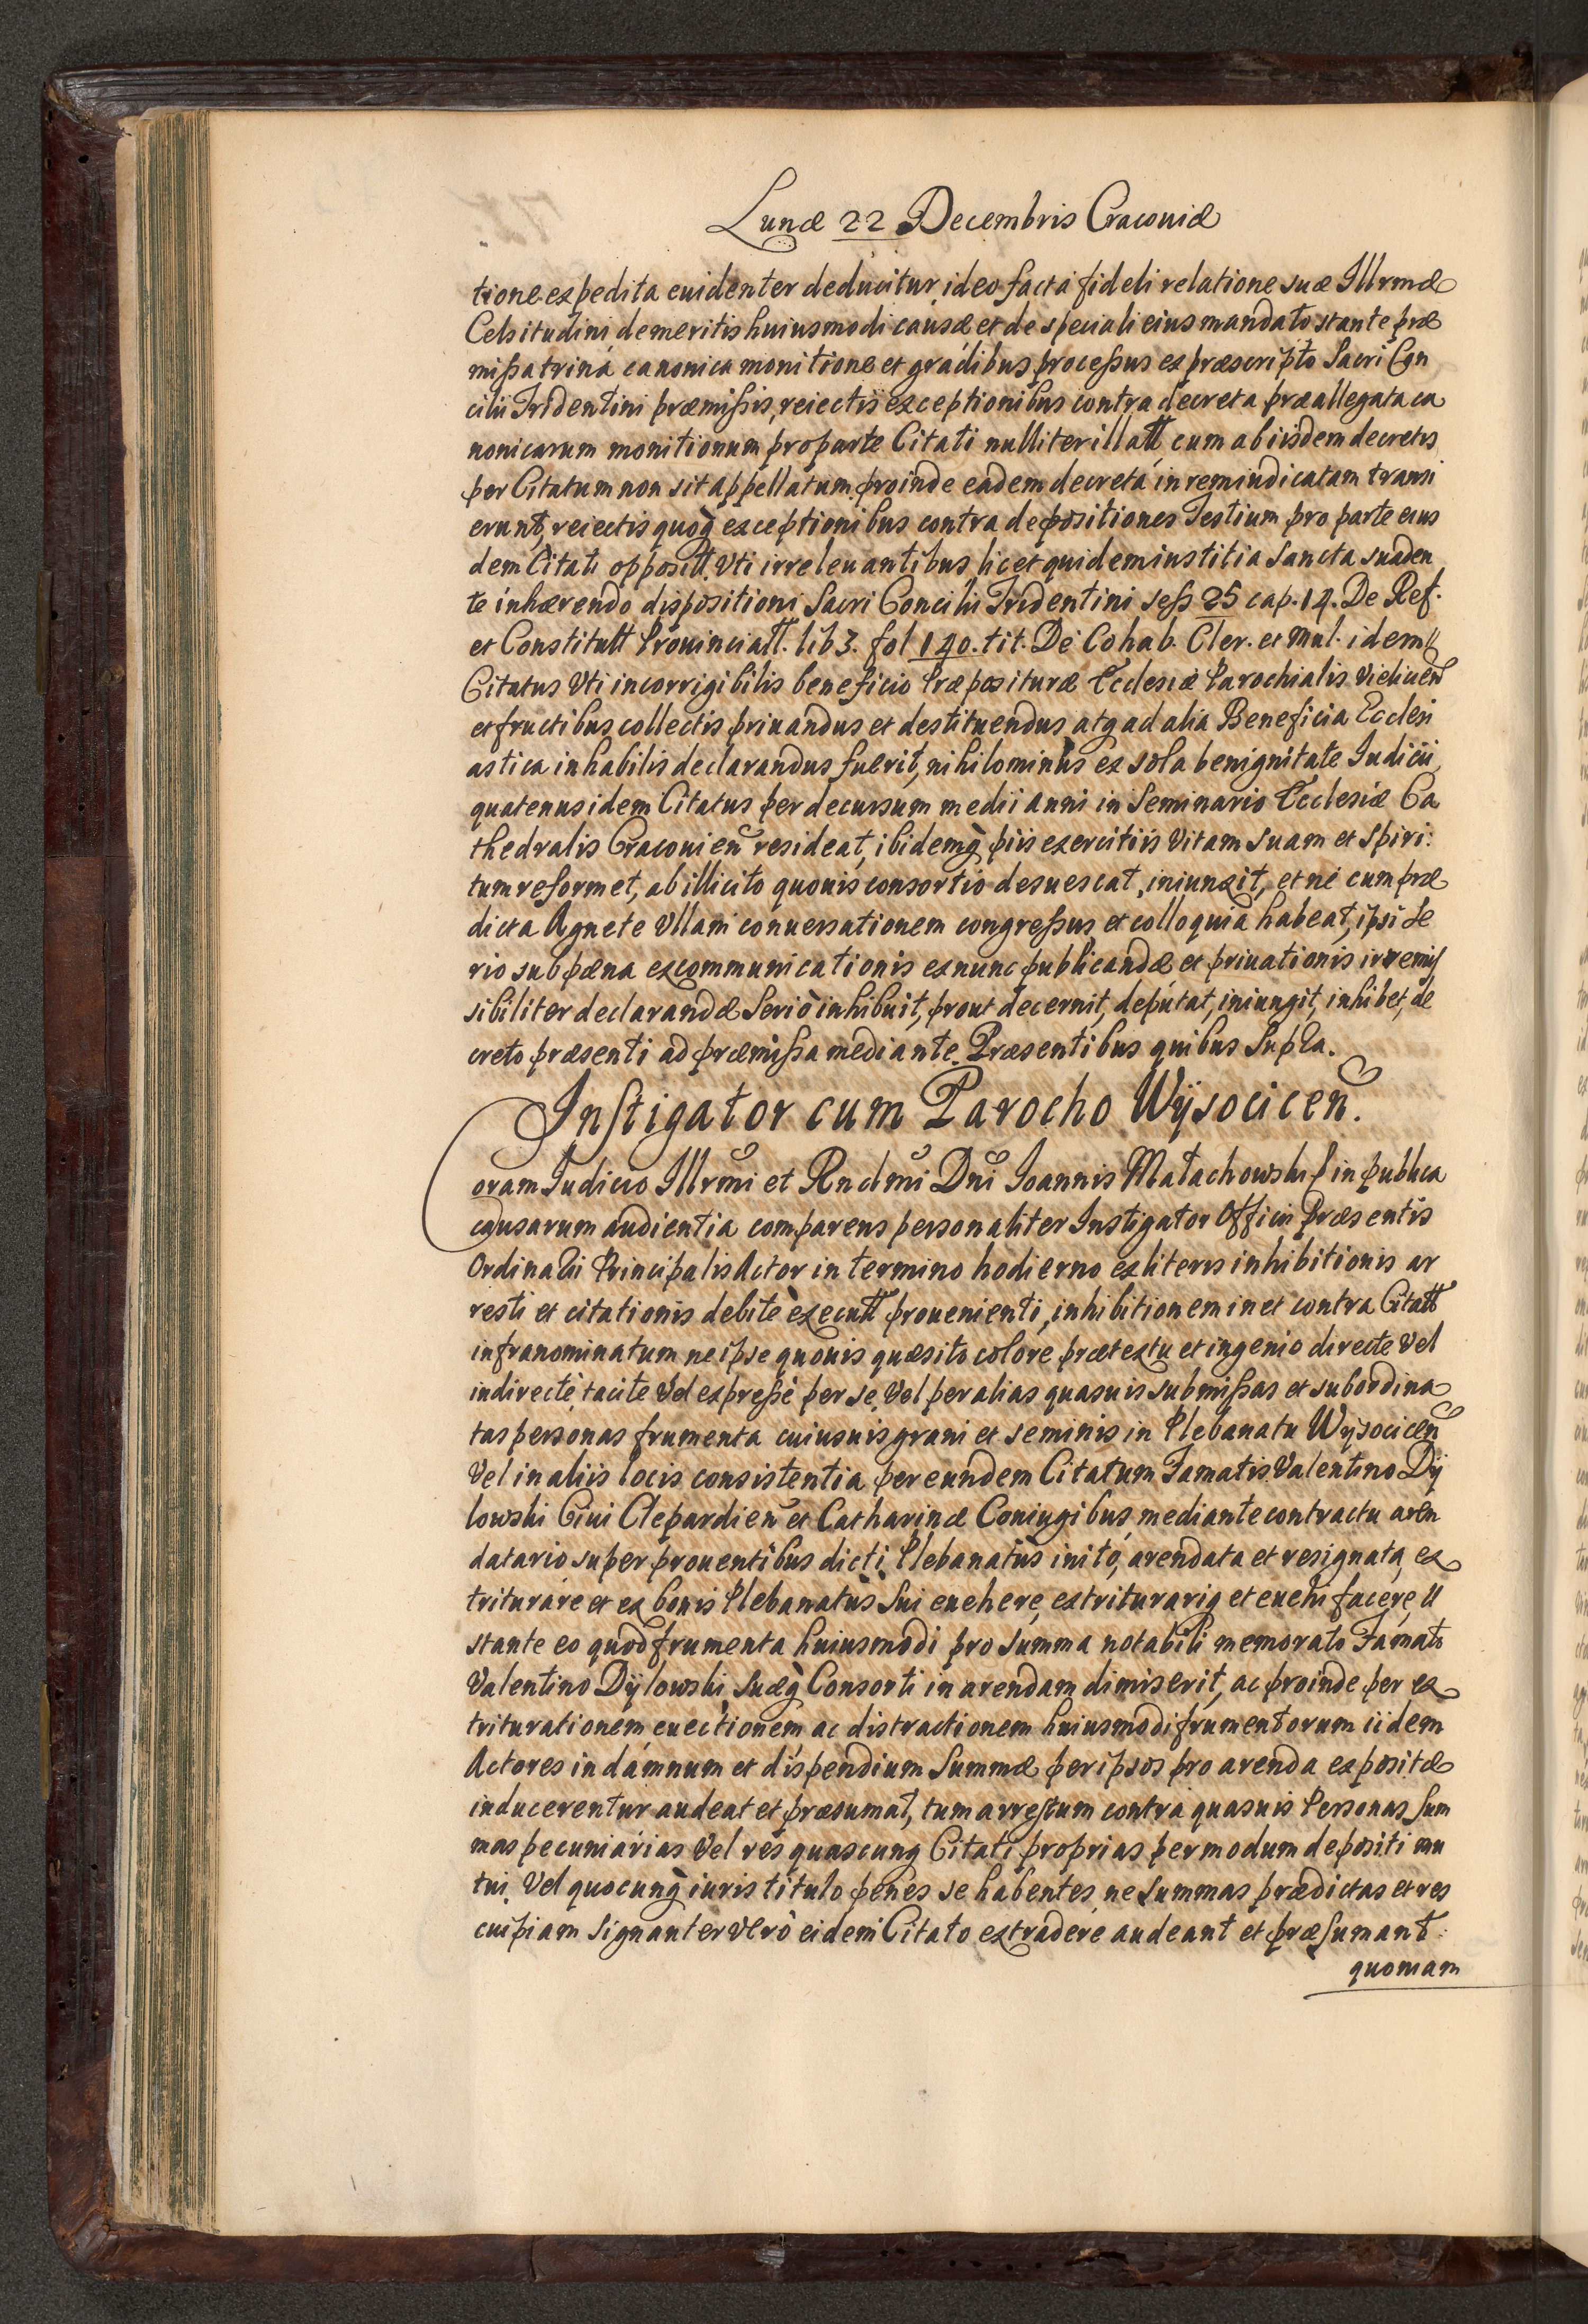 Lunæ 22 Decembris Cracouiæ
tione expedita euidenter deducitur, ideo facta fideli relatione suæ Illrmæ
Celsitudini, de meritis huiusmodi causæ et de speciali eius mandato stante præ
missa trina canonica monitione et gradibus processus ex præscripto Sacri Con
cilii Tridentini præmissis, reiectis exceptionibus contra decreta præallegata ca
nonicarum monitionum pro parte Citati nulliter illatt, cum ab iisdem decretis
per Citatum non sit appellatum, proinde eadem decreta in rem iudicatam transi
erunt, reiectis quoq exceptionibus contra depositiones Testium pro parte eius
dem Citati opposítt, vti irreleuantibus, licet quidem iustitia Sancta suaden
te inhærendo dispositioni Sacri Concilii Tridentini sess 25 cap. 14. De Ref.
et Constitutt Prouinciatt. lib 3. fol 140. tit. De Cohab. Cler. et Mul. idem
Citatus Vti incorrigibilis beneficio Præposituræ Ecclesiæ Parochialis Vielicen
et fructibus collectis priuandus et destituendus atq ad alia Beneficia Ecclesi
astica inhabilis declarandus fuerit, nihilominus ex sola benignitate Iudicii,
quatenus idem Citatus per decursum medii anni in Seminario Ecclesiæ Ca
thedralis Cracouien resideat, ibidemq piis exercitiis Vitam suam et spiri:
tum reformet, ab illicito quouis consortio desuescat, iniunxit, et ne cum præ
dicta Agnete Vllam conuersationem congressus et colloquia habeat, ipsi Se
rio sub pœna excommunicationis ex nunc publicandæ et priuationis irremis
sibiliter declarandæ Seriò inhibuit, prout decernit, deputat, iniungit, inhibet, de
creto præsenti ad præmissa mediante. Præsentibus quibus Supra.
Instigator cum Parocho Wÿsocicen.
Coram Iudicio Illrmi et Rndmi Dni Ioannis Małachowski in publica
causarum audientia comparens personaliter Instigator Officii Præsentis
Ordinarii Principalis Actor in termino hodierno ex literis inhibitionis ar
resti et citationis debite executt prouenienti, inhibitionem in et contra Citatt
infranominatum ne ipse quouis quæsito colore prætextu et ingenio directe Vel
indirecte, tacite Vel expressè per se, Vel per alias quasuis submissas et subordina
tas personas frumenta cuiusuis grani et seminis in Plebanatu Wysocicen
Vel in aliis locis consistentia per eundem Citatum Famatis Valentino Dÿ
lowski Ciui Clepardien et Catharinæ Coniugibus, mediante contractu aren
datario super prouentibus dicti Plebanatus inito, arendata et resignata, ex
triturare et ex bonis Plebanatus Sui euehere, extriturariq et euehi facere,
stante eo quod frumenta huiusmodi pro Summa notabili memorato Famato
Valentino Dÿlowski, Suæq Consorti in arendam dimiserit, ac proinde per ex
triturationem euectionem ac distractionem huiusmodi frumentorum iidem
Actores in damnum et dispendium Summæ per ipsos pro arenda expositæ
inducerentur audeat et præsumat, tum arrestum contra quasuis Personas Sum
mas pecuniarias Vel res quascunq Citati proprias per modum depositi mu
tui, Vel quocunq iuris titulo penes se habentes, ne Summas prædictas et res
cuipiam Signanter Verò eidem Citato extradere audeant et præsumant:
quoniam